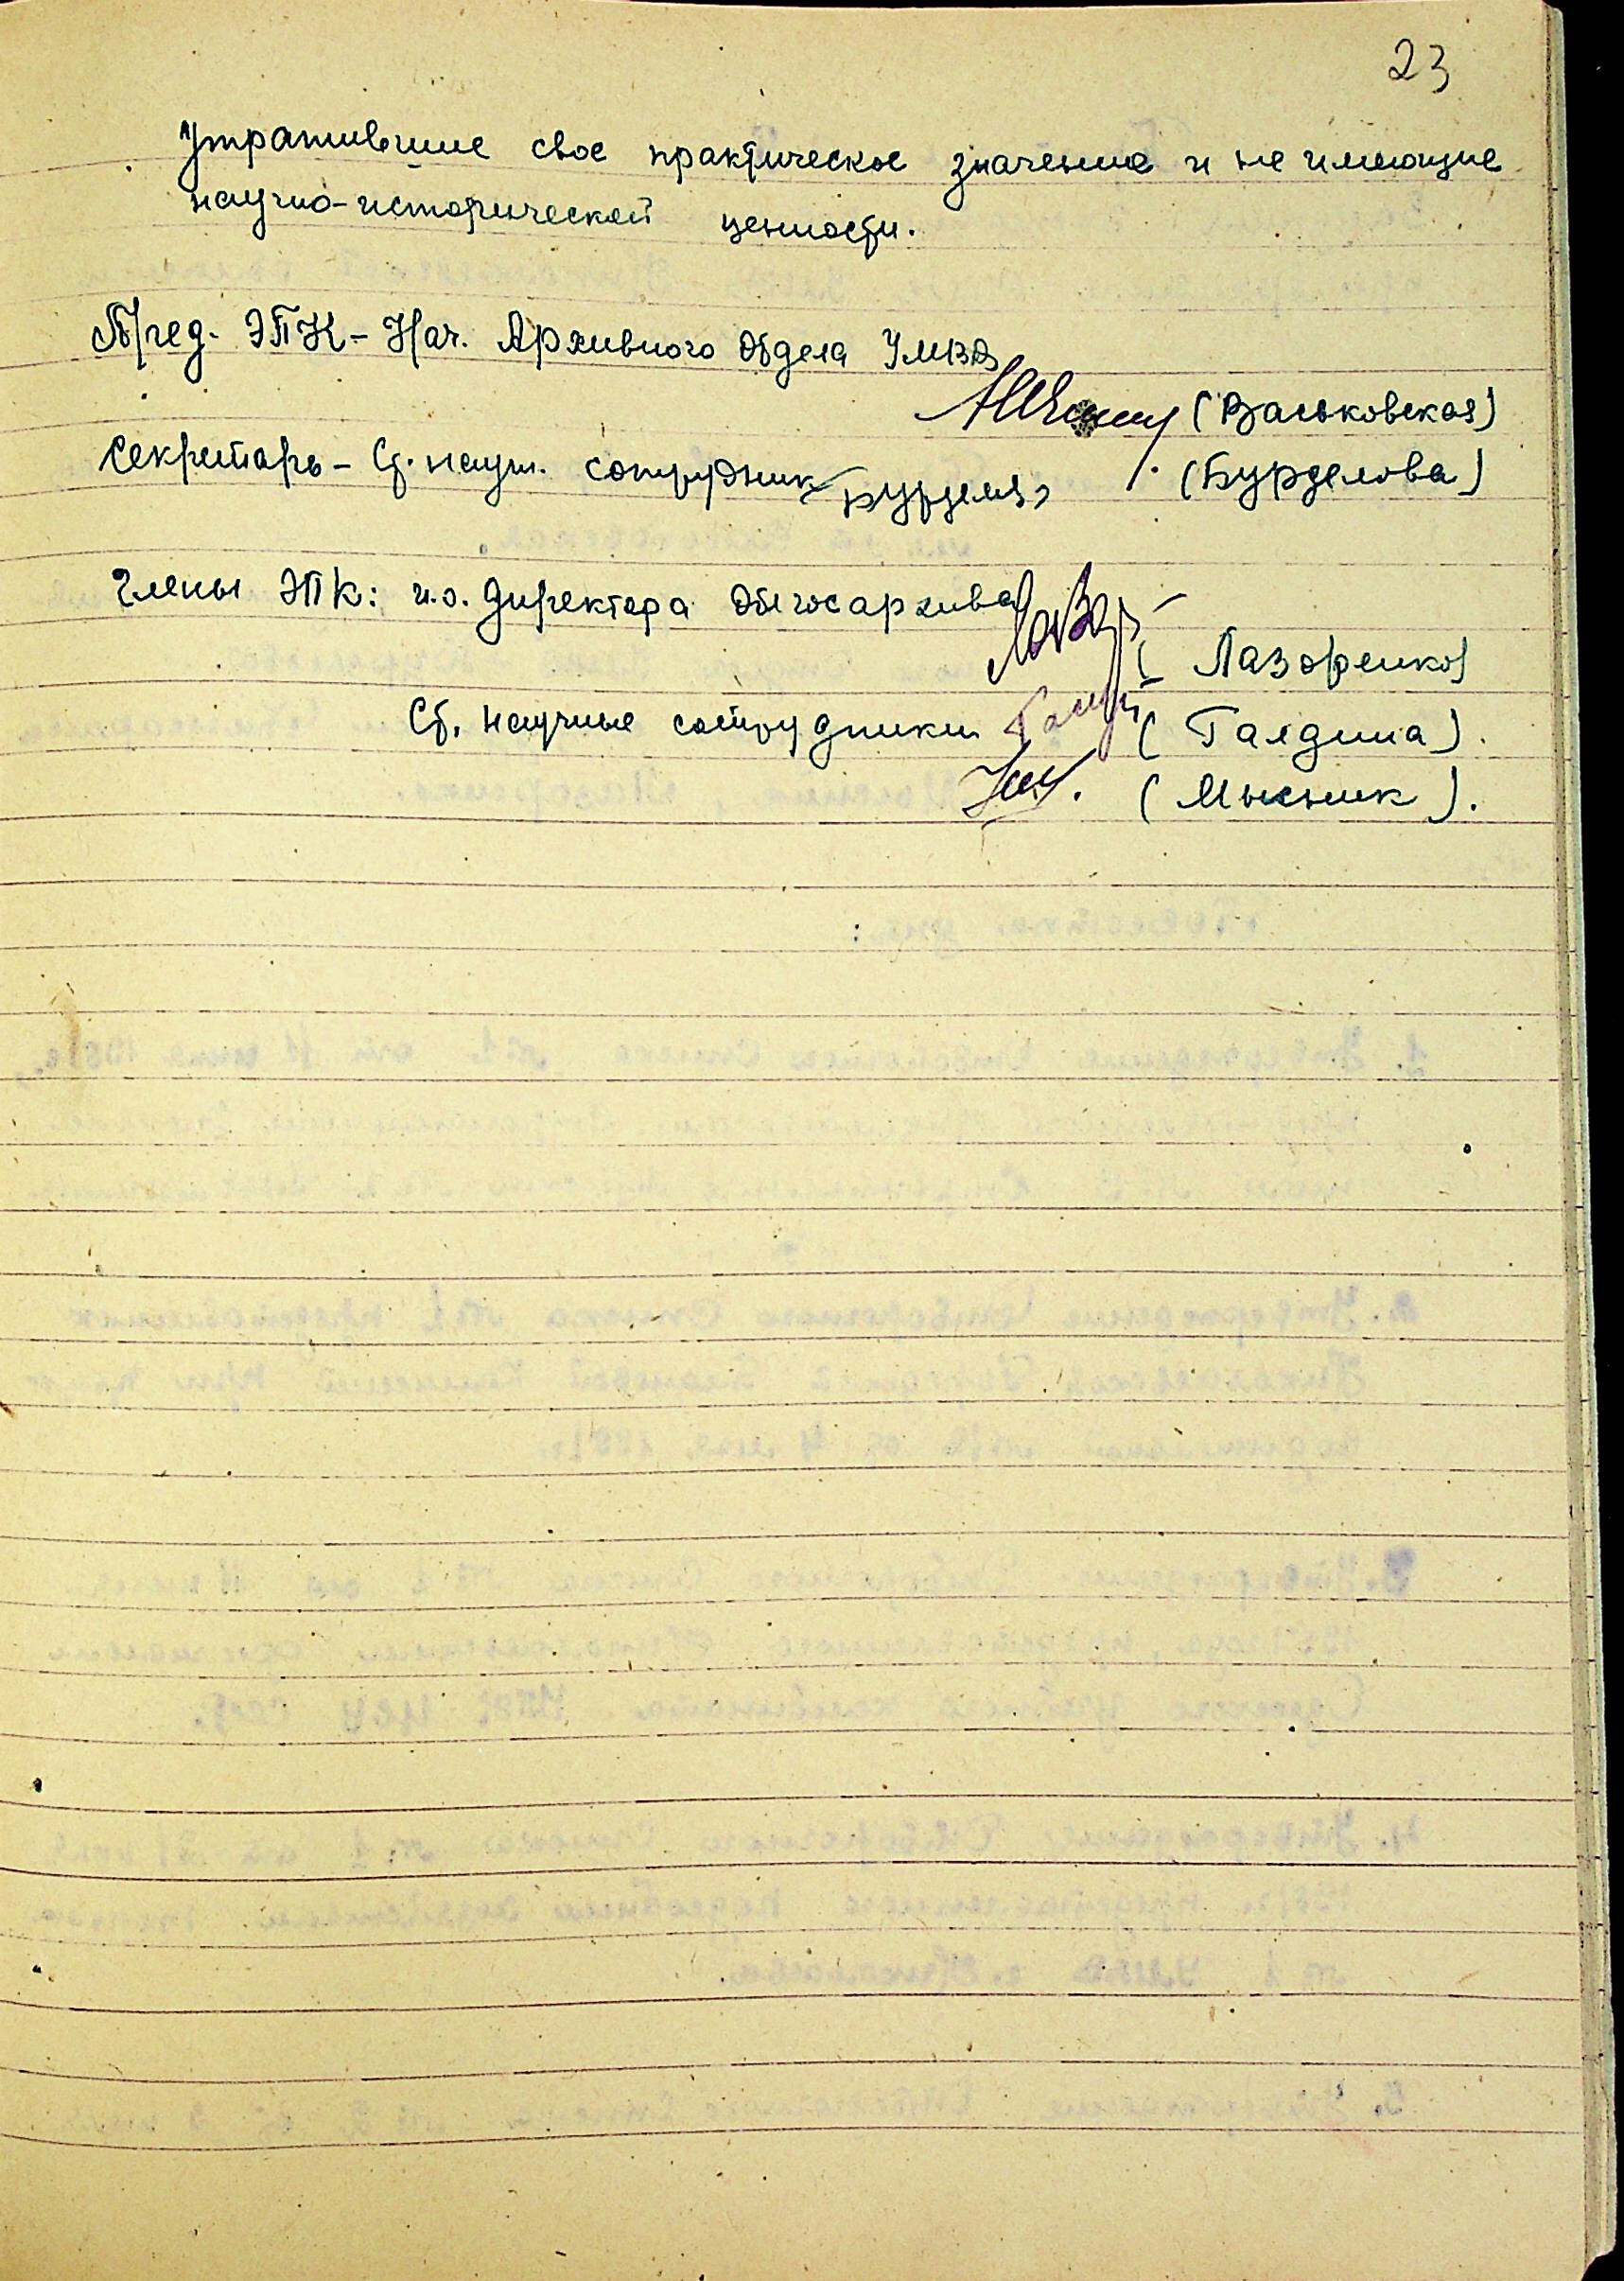 23
утратившие свое практическое значение и не имеющие
научно-исторической ценности.
Пред. ЭПК - Нач. Архивного Отдела УМВД
(Васьковская)
Секретарь - Ст. научн. сотрудник (Бурделова)
Члены ЭПК: и.о. директора Облгосархива
(Лазоренко)
Ст. научные сотрудники (Галдина).
(Мысник).